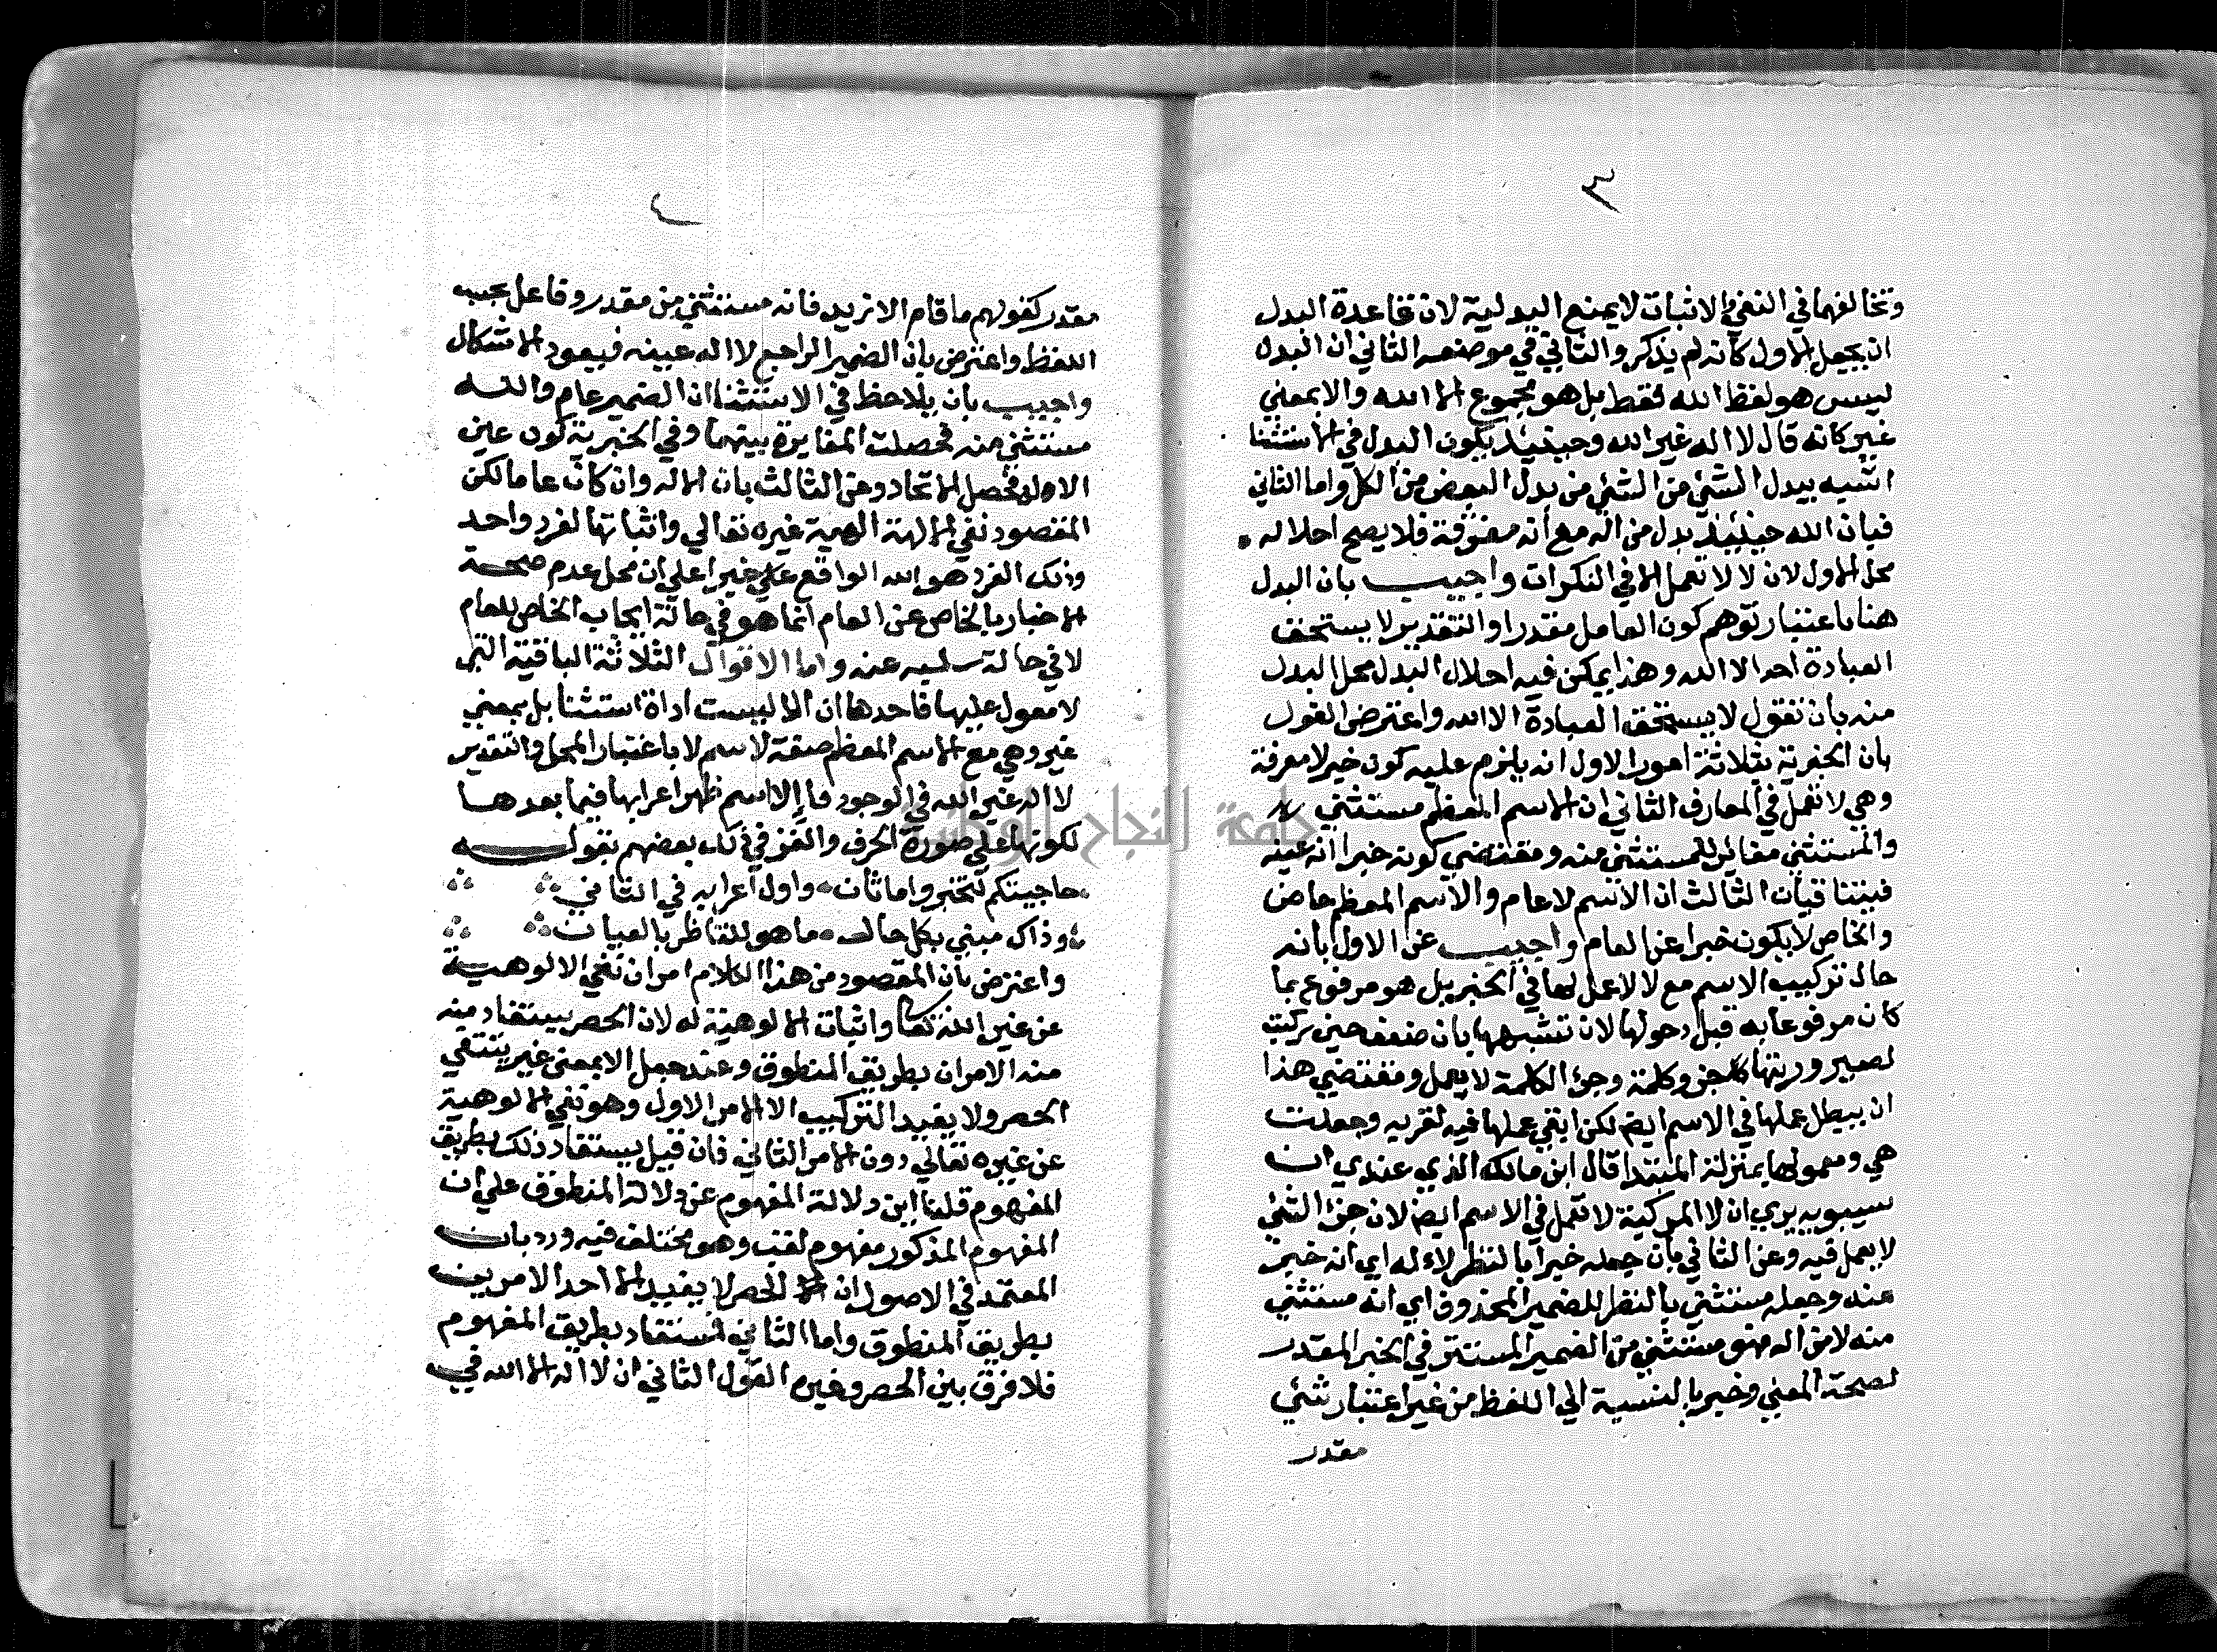 ٣
وتخالفهما في النفي والاثبات لا يمنع البدلية لان قاعدة البدل
ان يجعل الاول كانه لم يذكر والثاني في موضعه الثاني ان البدل
ليس هو لفظ الله فقط بل هو مجموع الا الله والا بمعني
غير كانه قال لا اله غير الله وحينيذ يكون البدل في الاستثنا
اشبه ببدل الشئ من الشئ من بدل البعض من الكل واما الثاني
فبان الله حينيذ بدل من اله مع انه معرفة فلا يصح احلاله
محل الاول لان لا لا تعمل الا في النكرات واجيب بان البدل
هنا باعتبار توهم كون العامل مقدرا والتقدير لا يستحق
العبادة احد الا الله وهذا يمكن فيه احلال البدل محل المبدل
منه بان تقول لا يستحق العبادة الا الله واعترض القول
بان الخبرية بثلاثة امور الاول انه يلزم عليه كون خبر لا معرفة
وهي لا تعمل في المعارف الثاني ان الاسم المعظم مستثني
والمستثني مغاير للمستثني منه ومقتضي كونه خبرا انه عينه
فبينتا قيان الثالث ان الاسم لا عام والاسم المعظم خاص
والخاص لا يكون خبرا عن العام واجيب عن الاول بانه
حال تركيب الاسم مع لا لا عمل لها في الخبر بل هو مرفوع بما
كان مرفوعا به قبل دحولها لان تشبيهها بان ضعف حين ركبت
لصيرورتها كجزء كلمة وجزء الكلمة لا يعمل ومقتضي هذا
ان يبطل عملها في الاسم ايض لكن ابقي عملها فيه لقربه وجعلت
هي ومعمولها بمنزلة المبتدا قال ابن مالك الذي عندي ان
سيبويه يري ان لا المركبة لا تعمل في الاسم ايض لان جزء الشئ
لا يعمل فيه وعن الثاني بان جعله خبرا بالنظر لاله اي انه خبر
عنه وجعله مستثني بالنظر للضمير المحذوف اي انه مستثني
منه لا من اله فهو مستثني من الضمير المستتر في الخبر المقدر
لصحة المعني وخبر بالنسبة الي اللفظ من غير اعتبار شئ
مقدر
٤
مقدر كقولهم ما قام الا زيد فانه مستثني من مقدر وفاعل بحسب
اللفظ واعترض بان الضمير الراجع لا اله عينه فيعود الاشكال
واجيب بان يلاحظ في الاستثنا ان الضمير عام والله
مستثني منه فحصلت المغايرة بينهما وفي الخبرية كون عين
الاول فحصل الاتحاد وعن الثالث بان الاله وان كان عاما لكن
المقصود نفي الالهة الهمية غيره تعالي واثباتها لفرد واحد
وذلك الفرد هو الله الواقع خبرا علي ان محل عدم صحة
الاخبار بالخاص عن العام انما هو في حالة ايجاب الخاص للعام
لا في حالة سلبه عنه واما الاقوال الثلاثة الباقية التي
لا معول عليها فاحدها ان الا ليست اداة استثنا بل بمعني
غير وهي مع الاسم المعظم صفة لاسم لا باعتبار المحل والتقدير
لا اله غير الله في الوجود فا إلا اسم ظهر اعرابها فيما بعدها
لكونها علي صورة الحرف والغز في ذلك بعضهم بقوله
حاجيتكم لتخبروا ماثان واول اعرابه في الثاني
وذاك مبني بكل حال ما هو للناظر بالعيان
واعترض بان المقصود من هذا الكلام امران نفي الالوهية
عن غير الله تعا واثبات الالوهية له لان الحصر يستفاد منه
منه الامران بطريق المنطوق وعند جعل الا بمعني غير ينتفي
الحصر ولا يفيد التركيب الا الامر الاول وهو نفي الالوهية
عن غيره تعالي دون الامر الثاني فان قيل يستفاد ذلك بطريق
المفهوم قلنا اين دلالة المفهوم عن دلالة المنطوق علي ان
المفهوم المذكور مفهوم لقب وهو مختلف فيه ورد بان
المعتمد في الاصول ان الحصر لا يفيد الا احد الامرين
بطريق المنطوق واما الثاني فمستفاد بطريق المفهوم
فلا فرق بين الحصر وغيره القول الثاني ان لا اله الا الله في
جامعة النجاح الوطنية